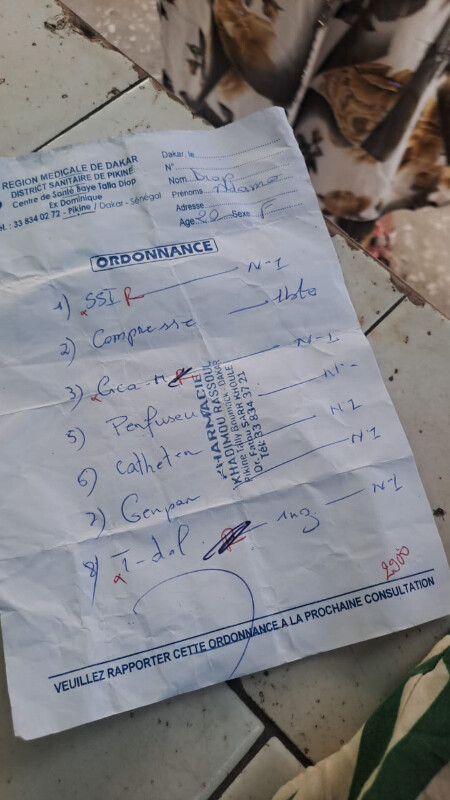 REGION MEDICALE DE DAKAR
DISTRICT SANITAIRE DE PIKINE
Centre de Santé Baye Talla Diop
Ex Dominique
Tél. : 33 834 02 72 - Pikine / Dakar - Sénégal
Dakar, le
N°
Nom Diop
Prénoms Adama
Adresse
Age 20 Sexe F
ORDONNANCE
1) SSI R N-1
2) Compresse 1bte
3) Cica-M N-1
5) Perfuseur N-
6) Catheter N1
7) Genpar N-1
8) T-dol inj N-1
PHARMACIE
KHADIMOU RASSOUL
Pikine Tally Boumack - DAKAR
Dr. Fatou SARR KHOULE
Tél: 33 834 37 21
2900
VEUILLEZ RAPPORTER CETTE ORDONNANCE A LA PROCHAINE CONSULTATION